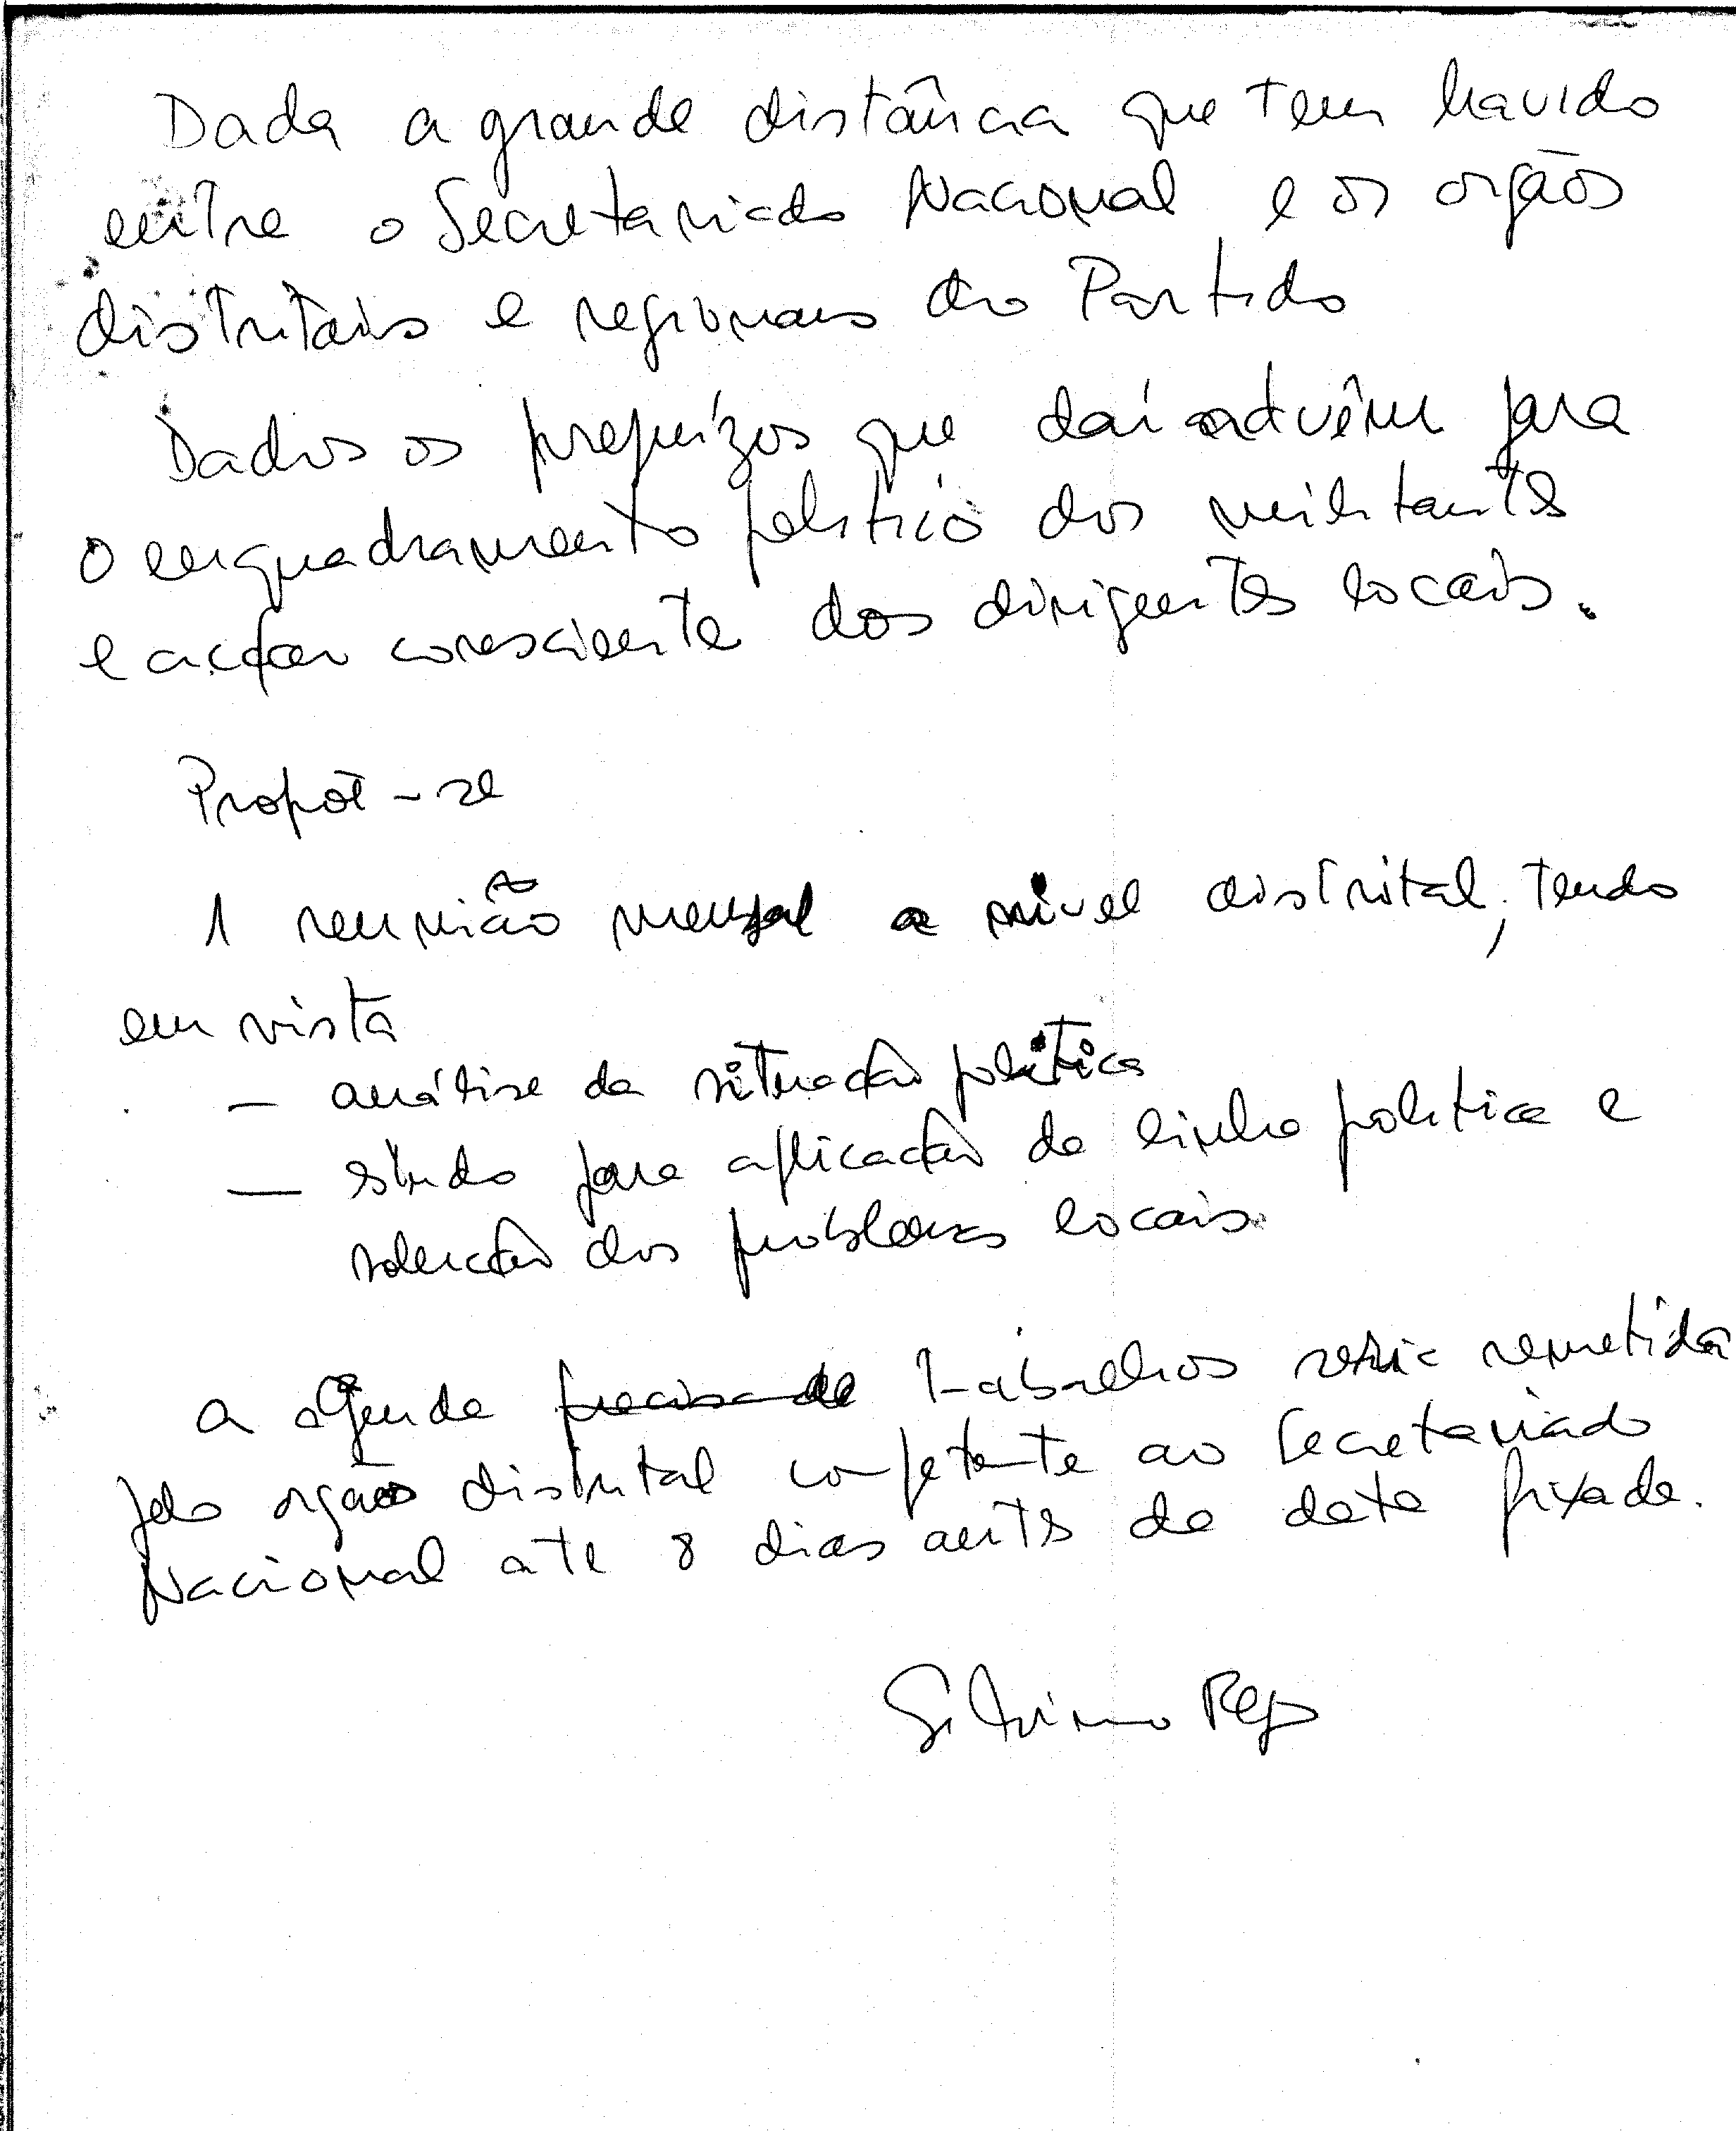 Dada a grande distância que tem havido
entre o Secretariado Nacional e os orgãos
distritais e regionais do Partido
Dados os prejuízos que daí advêm para
o enquadramento político dos militantes
e acção consciente dos dirigentes locais.
Propõe-se
1 reunião mensal a nível distrital, tendo
em vista
- análise da situação política
- estudo para aplicação da linha política e
solução dos problemas locais
a agenda trabalhos seria remetida
pelo orgão distrital competente ao Secretariado
Nacional até 8 dias antes da data fixada.
Silvino